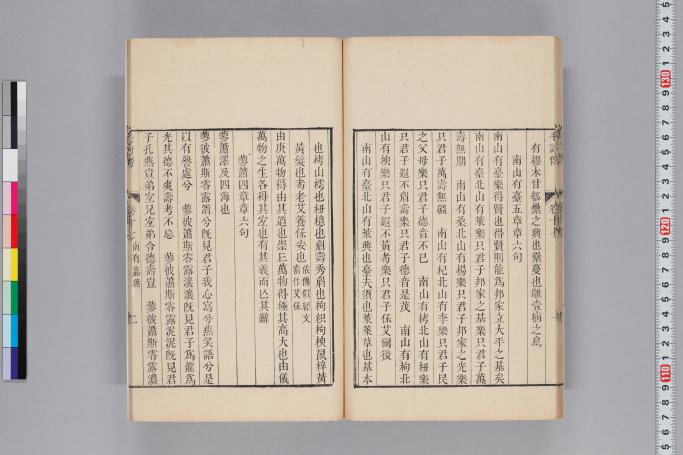 有樛木甘瓠纍之興也纍蔓也鵻壹宿之鳥
南山有臺五章章六句
南山有臺樂得賢也得賢則能爲邦家立大平之基矣
南山有臺北山有萊樂只君子邦家之基樂只君子萬
壽無期　南山有桑北山有楊樂只君子邦家之光樂
只君子萬壽無疆　南山有杞北山有李樂只君子民
之父母樂只君子德音不已　南山有栲北山有杻樂
只君子遐不眉壽樂只君子德音是茂　南山有枸北
山有楰樂只君子遐不黃耇樂只君子保艾爾後
南山有臺北山有萊興也臺夫須也萊草也基本
也栲山樗也杻檍也眉壽秀眉也枸枳枸楰鼠梓黃
黃髮也耇老艾養保安也
由庚萬物得由其道也崇丘萬物得極其高大也由儀
萬物之生各得其宜也有其義而亡其辭
蓼蕭四章章六句
蓼蕭澤及四海也
蓼彼蕭斯零露湑兮旣見君子我心寫兮燕笑語兮是
以有譽處兮　蓼彼蕭斯零露瀼瀼旣見君子爲龍爲
光其德不爽壽考不忘　蓼彼蕭斯零露泥泥旣見君
子孔燕豈弟宜兄宜弟令德壽豈　蓼彼蕭斯零露濃
南有嘉魚
5 6 7 8 9 110 1 2 3 4 5 6 7 8 9 120 1 2 3 4 5 6 7 8 9 130 1 2 3 4 5